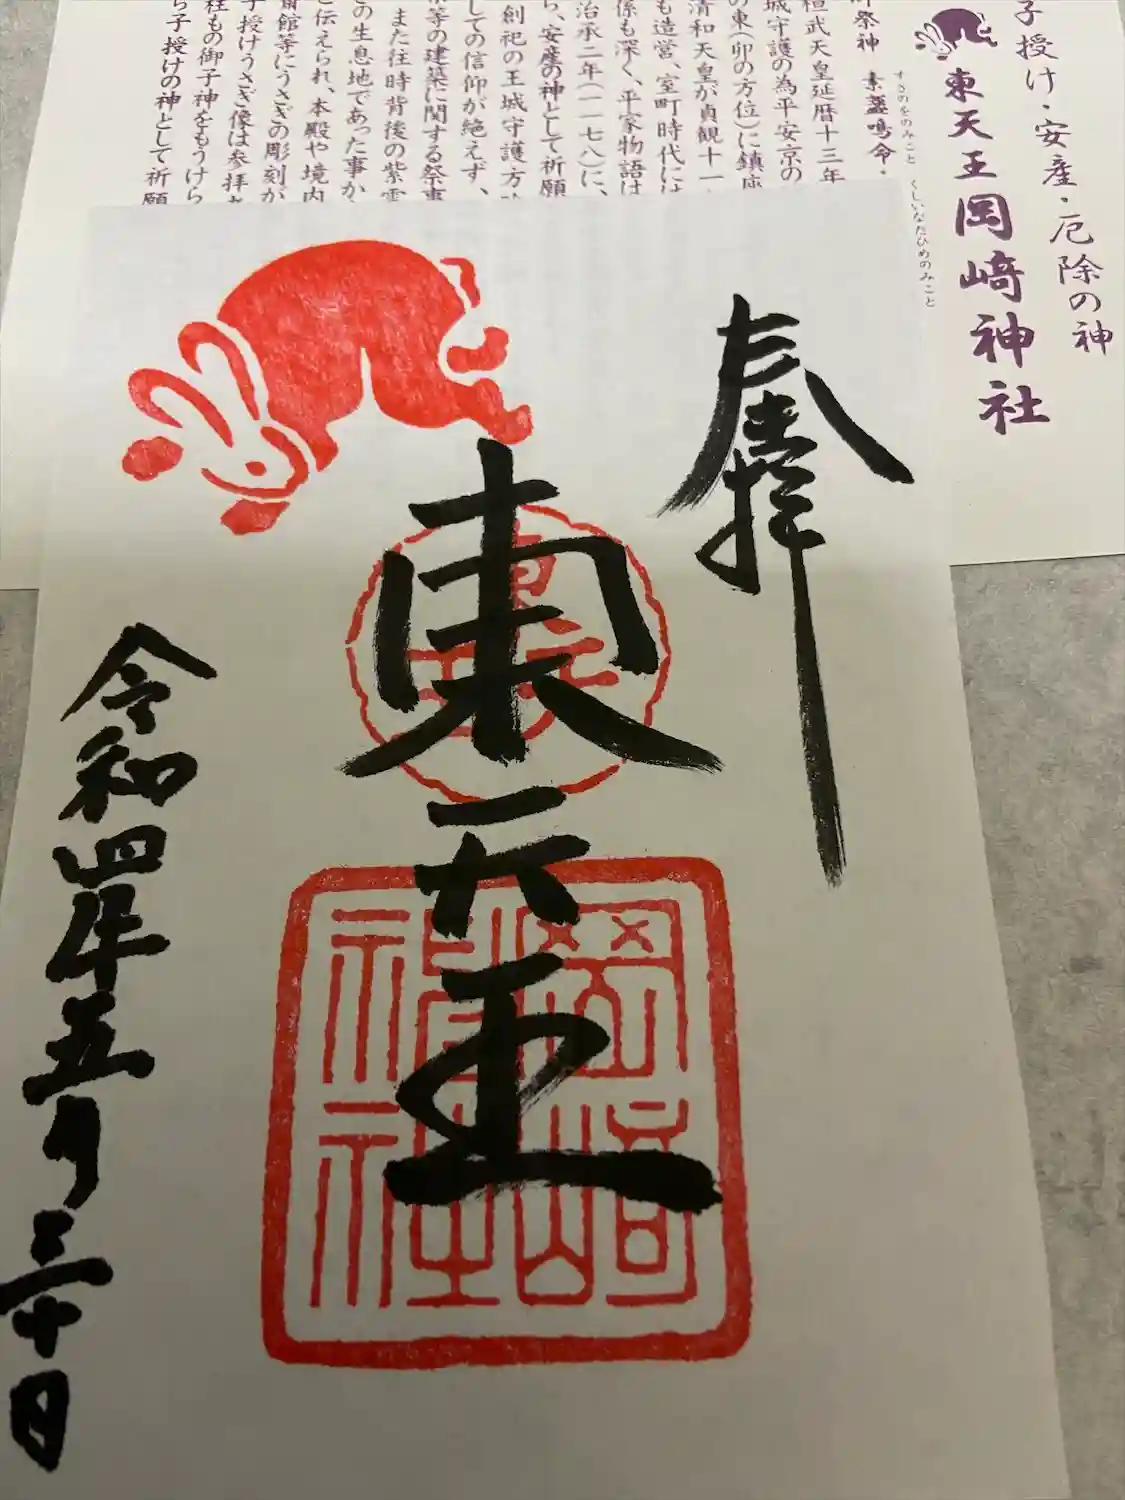 子授け・安産・厄除の神
東天王 岡崎神社
祭神 素盞嗚命・
すさのをのみこと くしいなだひめのみこと
桓武天皇延暦十三年
城守護の為平安京の
の東(卯の方位)に鎮座
清和天皇が貞観十一
も造営、室町時代には
係も深く、平家物語は
治承二年(一一七八)に、
ら、安産の神として祈願
創祀の王城守護、方
しての信仰が絶えず、
祭等の建築に関する祭事
また往時背後の紫雲
の生息地であった事か
と伝えられ、本殿や境内
斎館等にうさぎの彫刻が
子授けうさぎ像は参拝
柱もの御子神をもうけら
ら子授けの神として祈願
奉拝
東天王
岡崎
神社
令和四年五月三十日